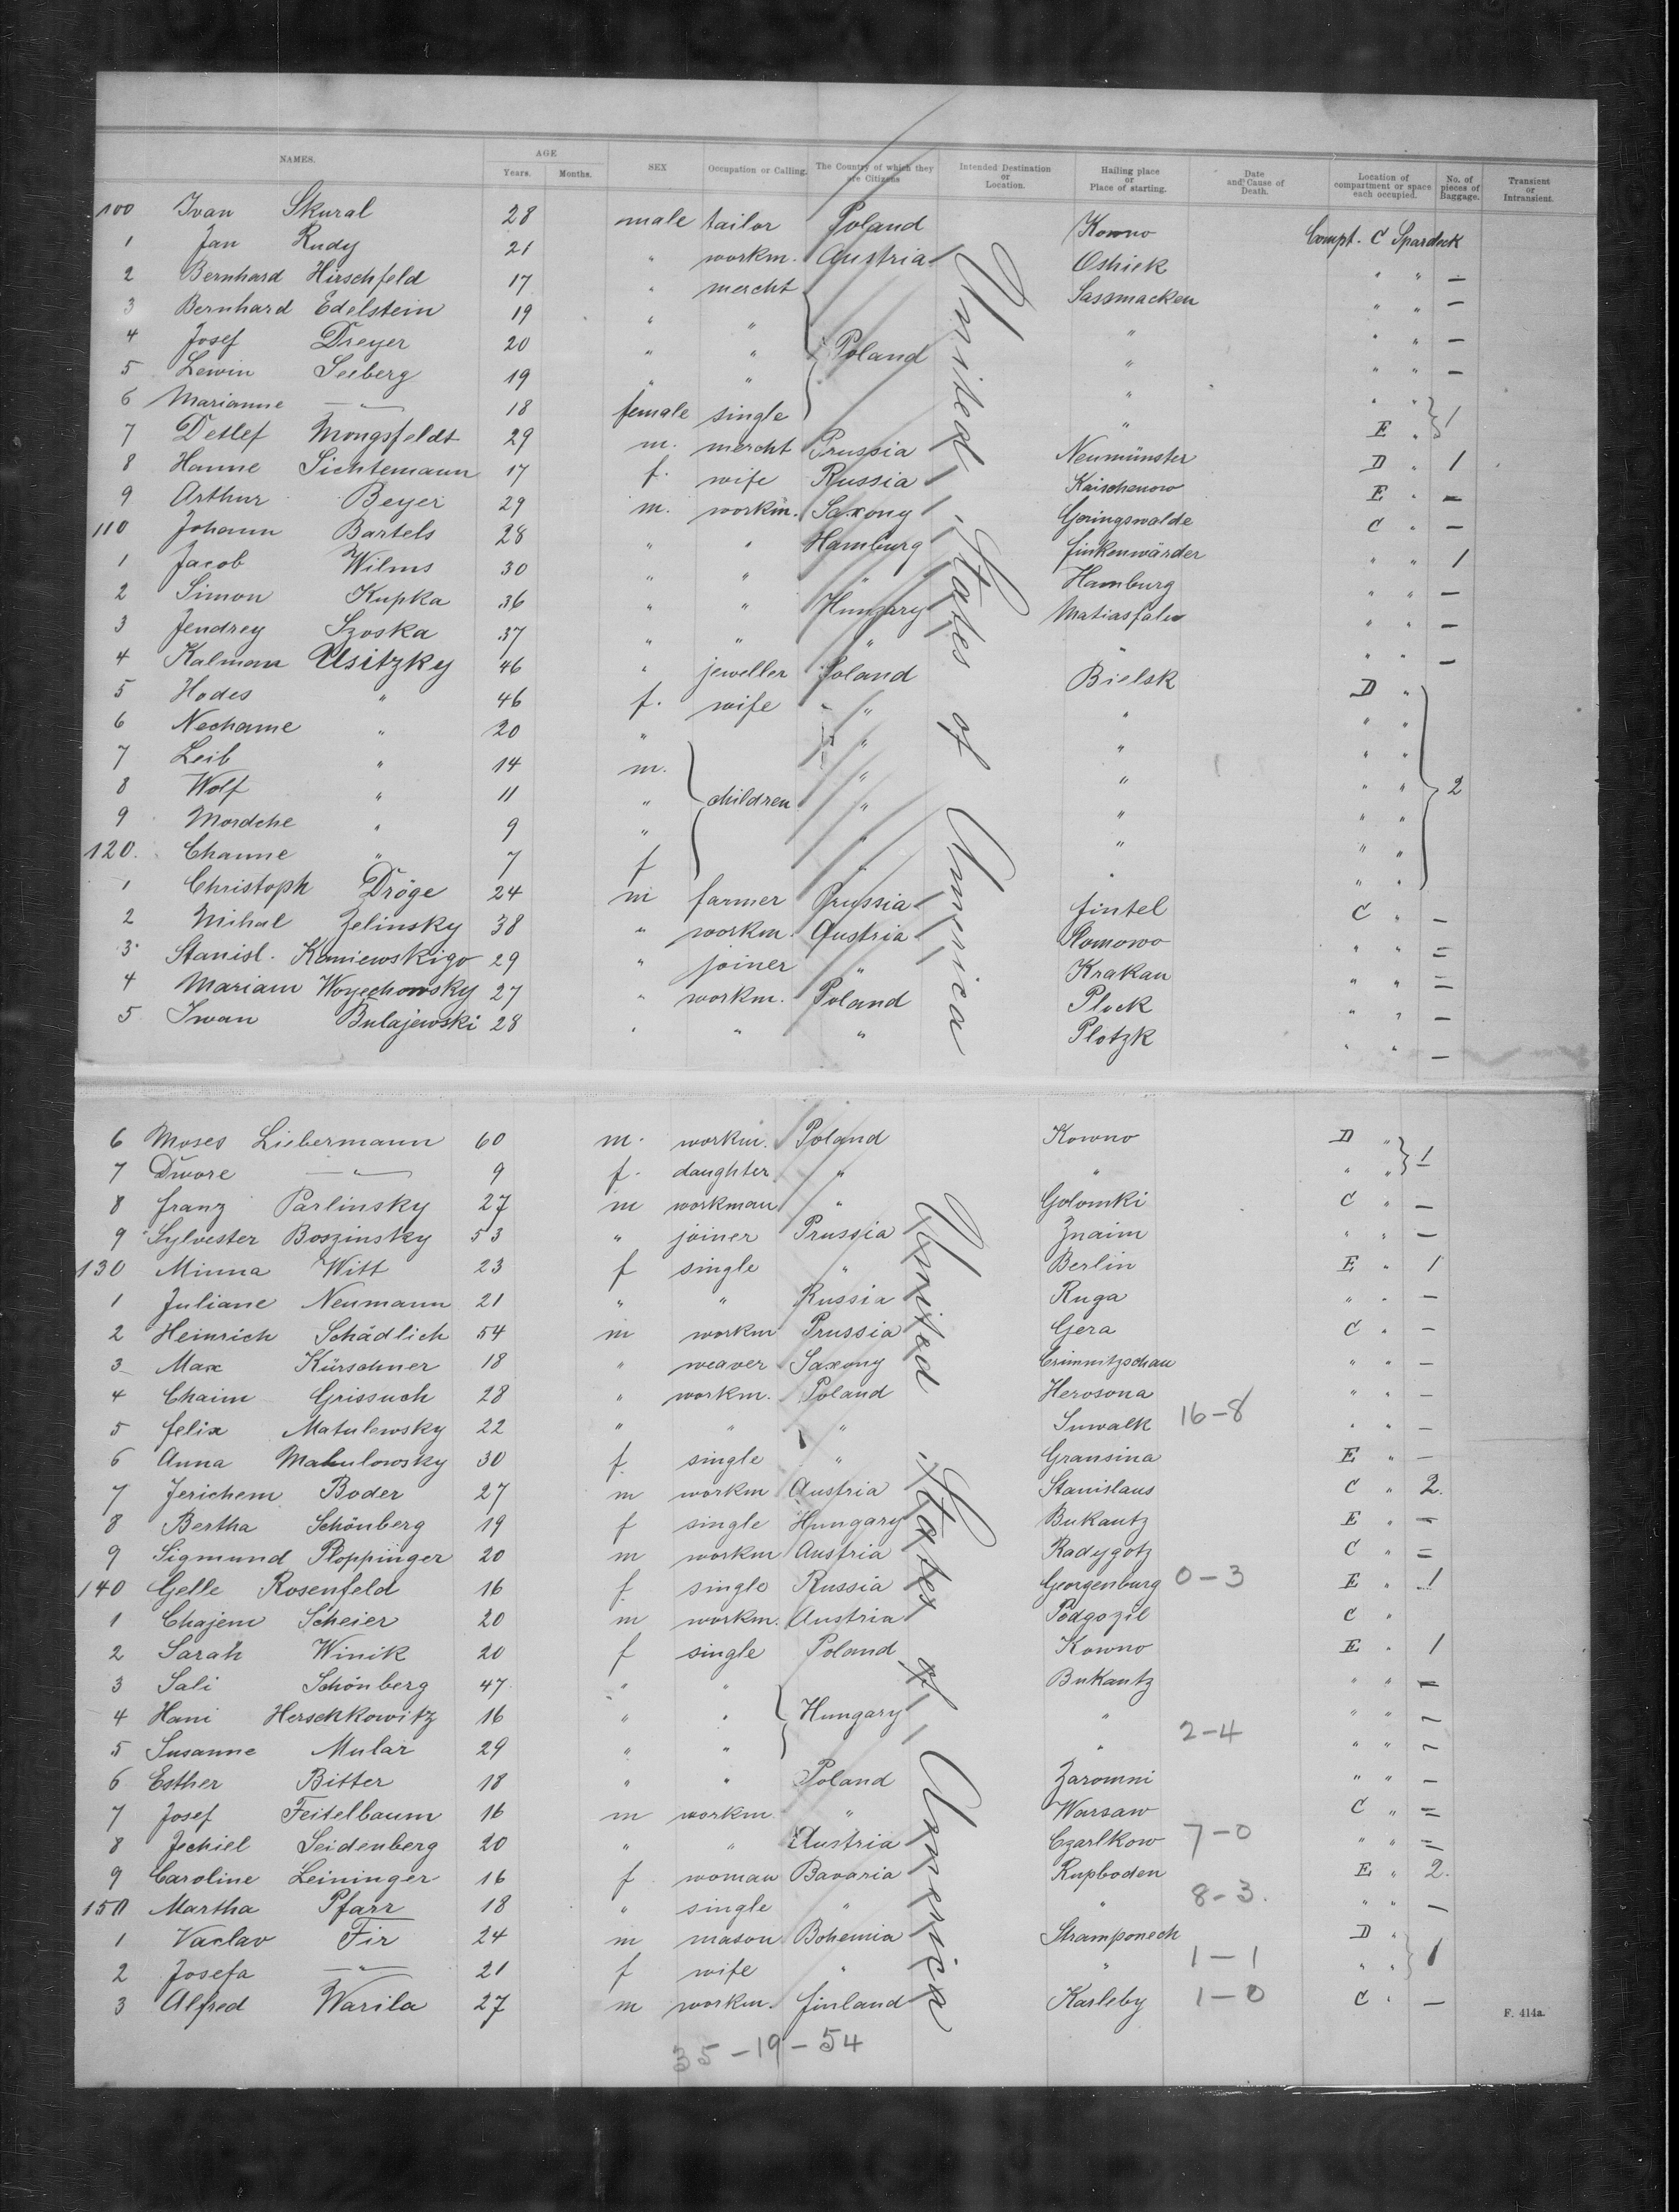 NAMES. AGE Years. Months. SEX Occupation or Calling. The Country of which they are Citizens Intended Destination or Location. Hailing place or Place of starting. Date and Cause of Death. Location of compartment or space each occupied. No. of pieces of Baggage. Transient or Intransient.
100 Ivan Skural 28 male tailor Poland Kowno Compt. C Spardeck
1 Jan Rudy 21 " workm. Austria Oshiek " " —
2 Bernhard Hirschfeld 17 " mercht Sassmacken " " —
3 Bernhard Edelstein 19 " " " " " —
4 Josef Dreyer 20 " " Poland " " " —
5 Lewin Seeberg 19 " " " " "
6 Marianne —"— 18 female single " E " 1
7 Detlef Mongsfeldt 29 m. mercht Prussia Neumünster D " 1
8 Hanne Lichtemann 17 f. wife Russia Kaischenow E " —
9 Arthur Beyer 29 m. workm. Saxony Geringswalde C " —
110 Johann Bartels 28 " " Hamburg finkenwärder " " 1
1 Jacob Wilms 30 " " " Hamburg " " —
2 Simon Kupka 36 " " Hungary Matiasfalu " " —
3 Jendrey Szoska 37 " " " " " " —
4 Kalman Usitzky 46 " jeweller Poland Bielsk D "
5 Hodes " 46 f. wife " " " "
6 Nechame " 20 " " " " "
7 Leib " 14 m. " " " "
8 Wolf " 11 " children " " " " 2
9 Mordche " 9 " " " " "
120. Channe " 7 f " " " "
1 Christoph Dröge 24 m farmer Prussia fintel C " —
2 Mihal Zelinsky 38 " workm. Austria Slomowo " " =
3 Stanisl. Kaniewskigo 29 " joiner " Krakau " " =
4 Mariam Woyechowsky 27 " workm. Poland Plock " " —
5 Iwan Bulajewski 28 " " " Plotzk " " —
United States of America
6 Moses Liebermann 60 m. workm. Poland Kowno D "
7 Dwore —"— 9 f. daughter " " " " 1
8 franz Parlinsky 27 m workman " Golomki C " —
9 Sylvester Boszinsky 53 " joiner Prussia Znaim " " —
130 Minna Witt 23 f single " Berlin E " 1
1 Juliane Neumann 21 " " Russia Ruga " " —
2 Heinrich Schädlich 54 m workm Prussia Gera C " —
3 Max Kürschner 18 " weaver Saxony Crimmitzschau " " —
4 Chaim Grissuch 28 " workm. Poland Herosona " " —
5 felix Matulewsky 22 " " " Suwalk 16-8 " " —
6 Anna Matulowsky 30 f. single " Gransina E " —
7 Jerichem Boder 27 m workm Austria Stanislaus C " 2.
8 Bertha Schönberg 19 f single Hungary Bukantz E " —
9 Sigmund Ploppinger 20 m workm Austria Radygotz C " =
140 Gelle Rosenfeld 16 f. single Russia Georgenburg 0-3 E " 1
1 Chajem Scheier 20 m workm. Austria Podgozil C "
2 Sarah Winik 20 f single Poland Kowno E " 1
3 Sali Schönberg 47 " " Bukantz " " —
4 Hani Herschkowitz 16 " " Hungary " " " —
5 Susanne Mular 29 " " " 2-4 " " —
6 Esther Bitter 18 " " Poland Zaromni " " —
7 Josef Feitelbaum 16 m workm " Warsaw C " =
8 Jechiel Seidenberg 20 " " Austria Czarlkow 7-0 " " =
9 Caroline Leininger 16 f woman Bavaria Rupboden E " 2.
150 Martha Pfarr 18 " single " " 8-3. " " —
1 Vaclav Fir 24 m mason Bohemia Stramponech D "
2 Josefa —"— 21 f wife " " 1-1 " " 1
3 Alfred Warila 27 m workm. finland Karleby 1-0 C " —
United States of America
F. 414a.
35-19-54